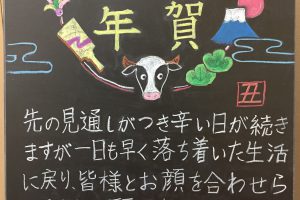 年賀
丑
先の見通しがつき辛い日が続き
ますが一日も早く落ち着いた生活
に戻り、皆様とお顔を合わせら